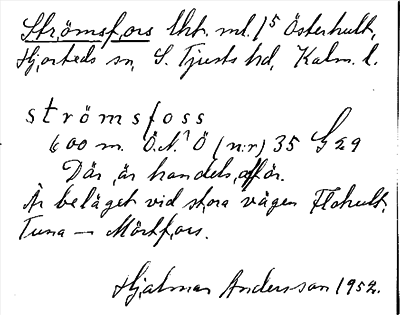 Strömsfors lht. ml. 1⁵ Österhult,
Hjorteds sn, S. Tjusts hd, Kalm. l.
strömsfoss
600 m. Ö.N.¹ Ö (n:r) 35 G 29
Där är handelsaffär.
Är beläget vid stora vägen Flohult,
Tuna – Mörtfors.
Hjalmar Andersson 1952.